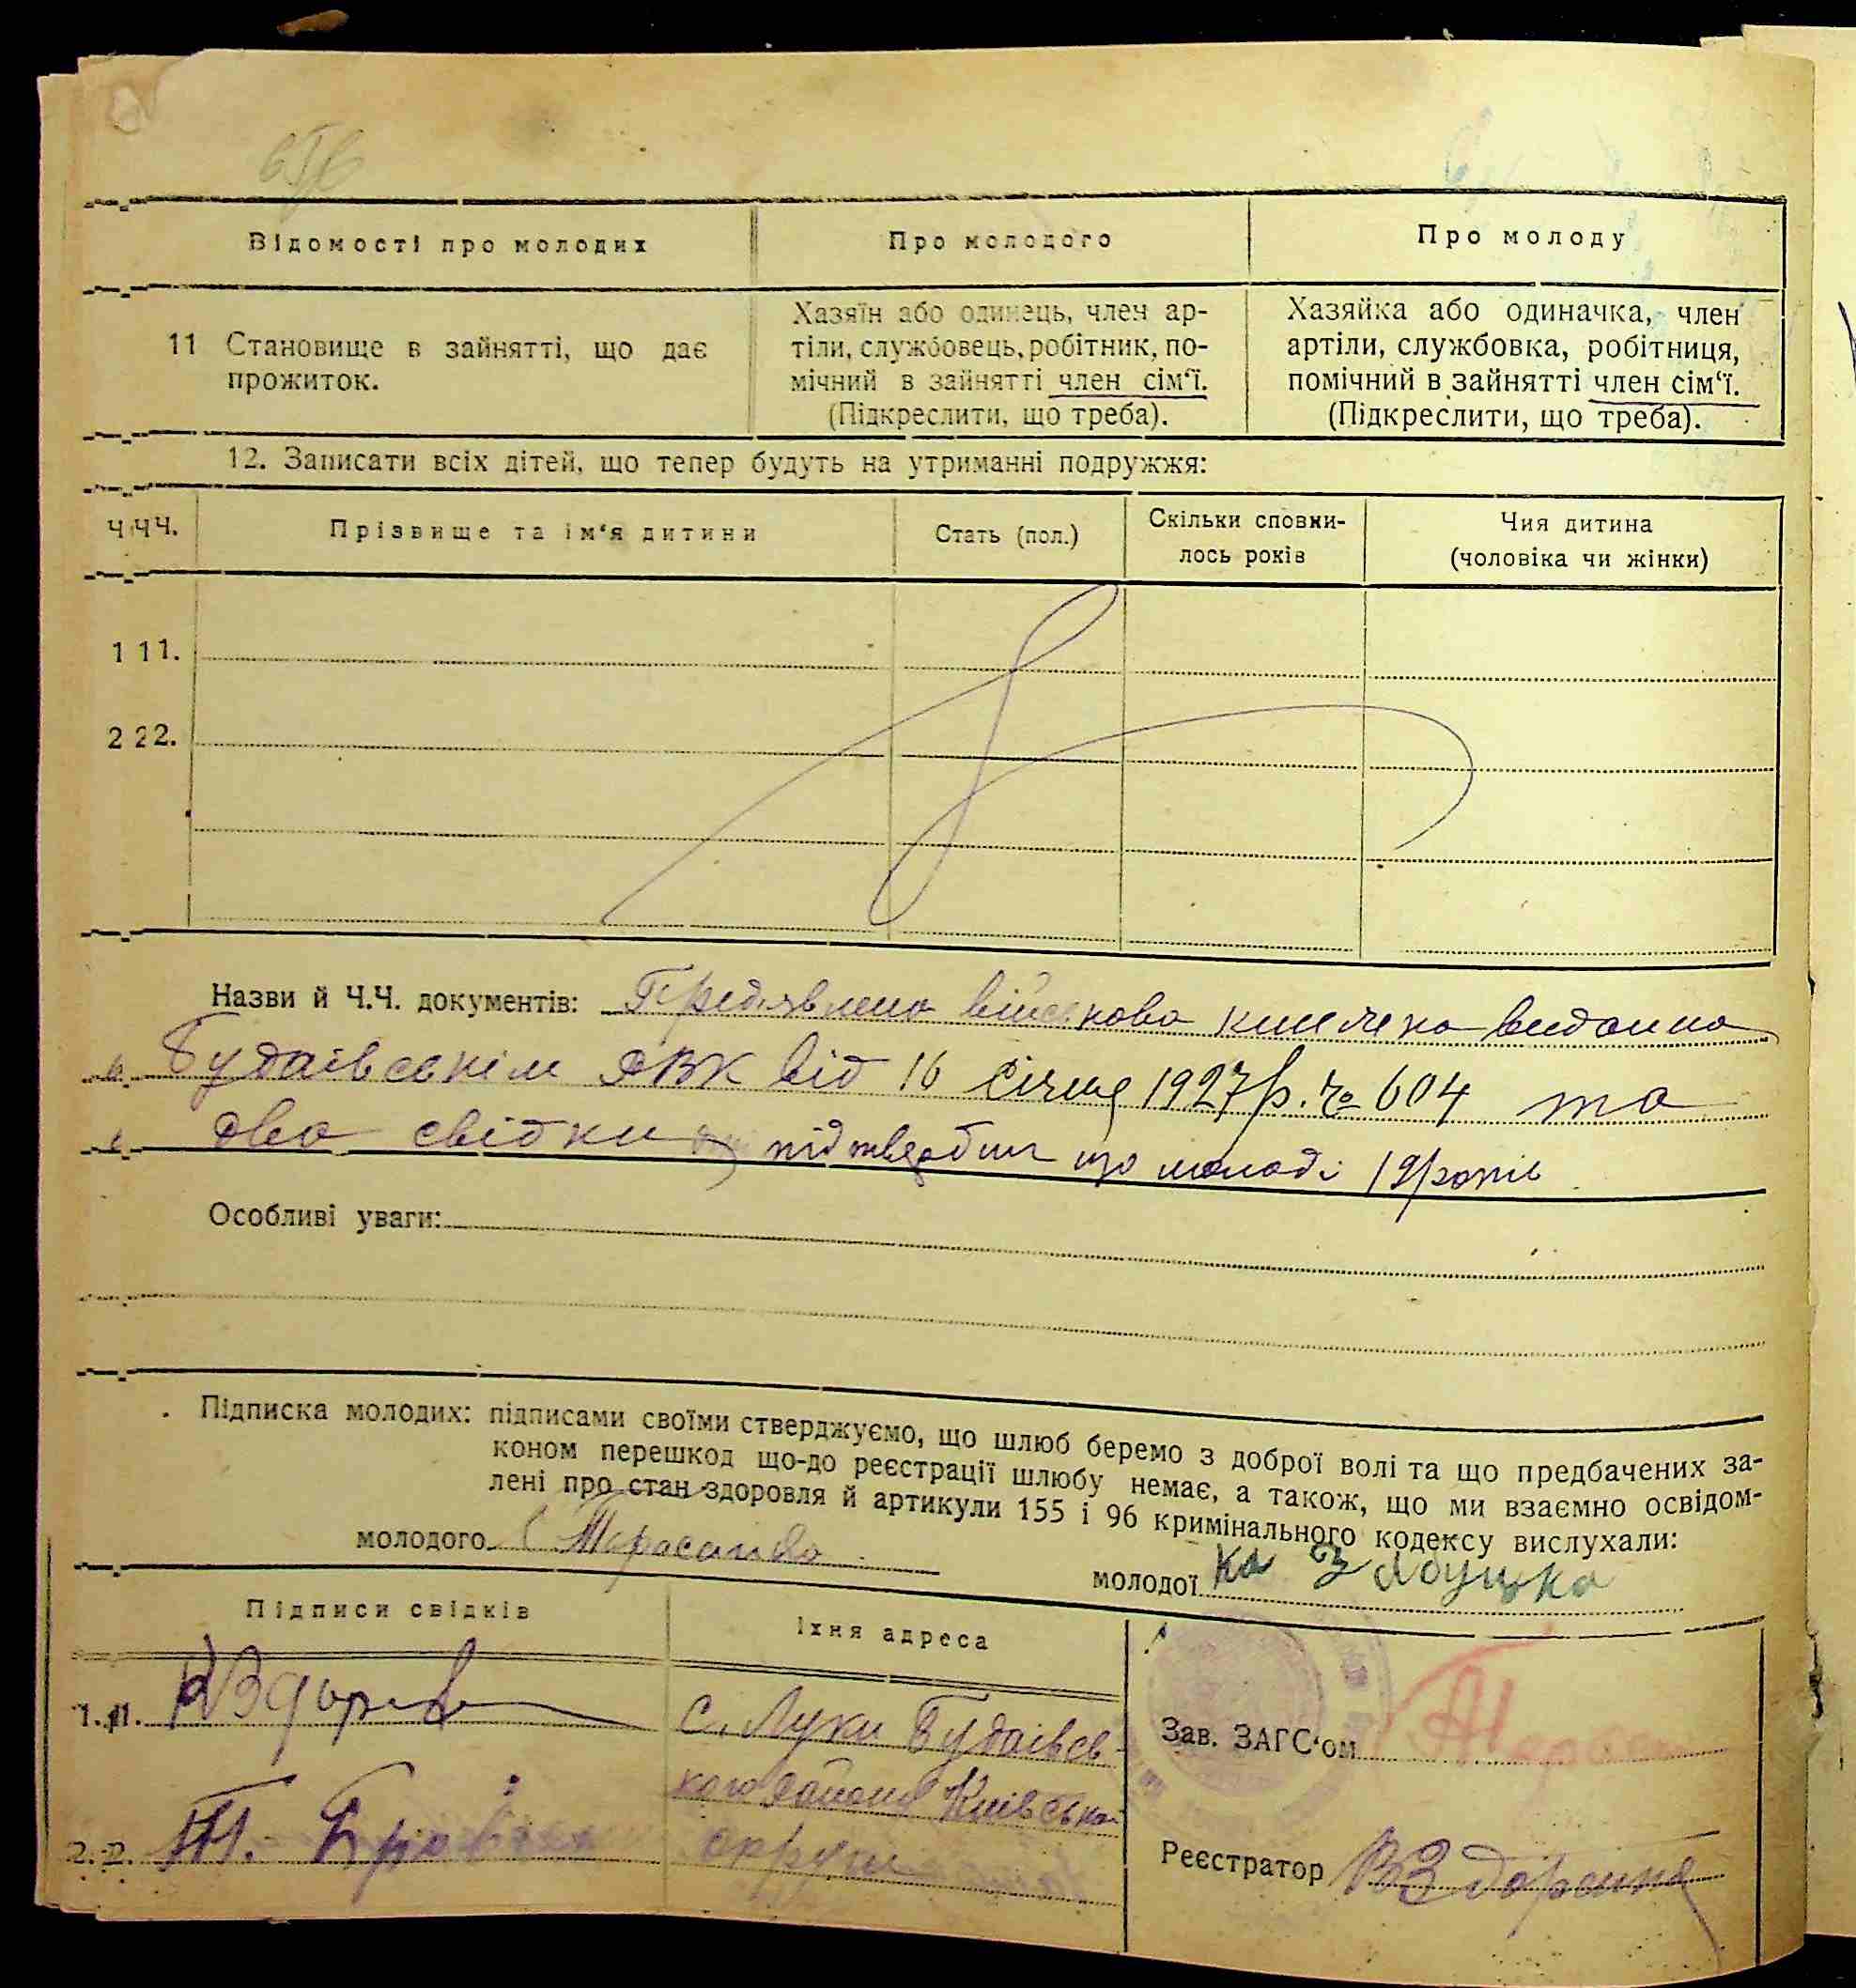 Відомості про молодих
Про молодого
Про молоду
11 Становище в зайнятті, що дає
прожиток.
Хазяїн або одинець, член ар-
тіли, службовець, робітник, по-
мічний в зайнятті член сім‘ї.
(Підкреслити, що треба).
Хазяйка або одиначка, член
артіли, службовка, робітниця,
помічний в зайнятті член сім‘ї.
(Підкреслити, що треба).
12. Записати всіх дітей, що тепер будуть на утриманні подружжя:
Ч.Ч.
Прізвище та ім‘я дитини
Стать (пол.)
Скільки сповни-
лось років
Чия дитина
(чоловіка чи жінки)
1 11.
2 22.
Назви й Ч.Ч. документів: Предявлено військова книжка видана
Будаівським РВК від 16 січня 1927 р. № 604 та
два свідки підтвердили що молоді 19 років
Особливі уваги:
Підписка молодих: підписами своїми стверджуємо, що шлюб беремо з доброї волі та що предбачених за-
коном перешкод що-до реєстрації шлюбу немає, а також, що ми взаємно освідом-
лені про стан здоровля й артикули 155 і 96 кримінального кодексу вислухали:
молодого
молодої
Підписи свідків
Їхня адреса
1.
с. Луки Будаівсь-
кого району Київської
округи
2. Т.
Зав. ЗАГС‘ом
Реєстратор